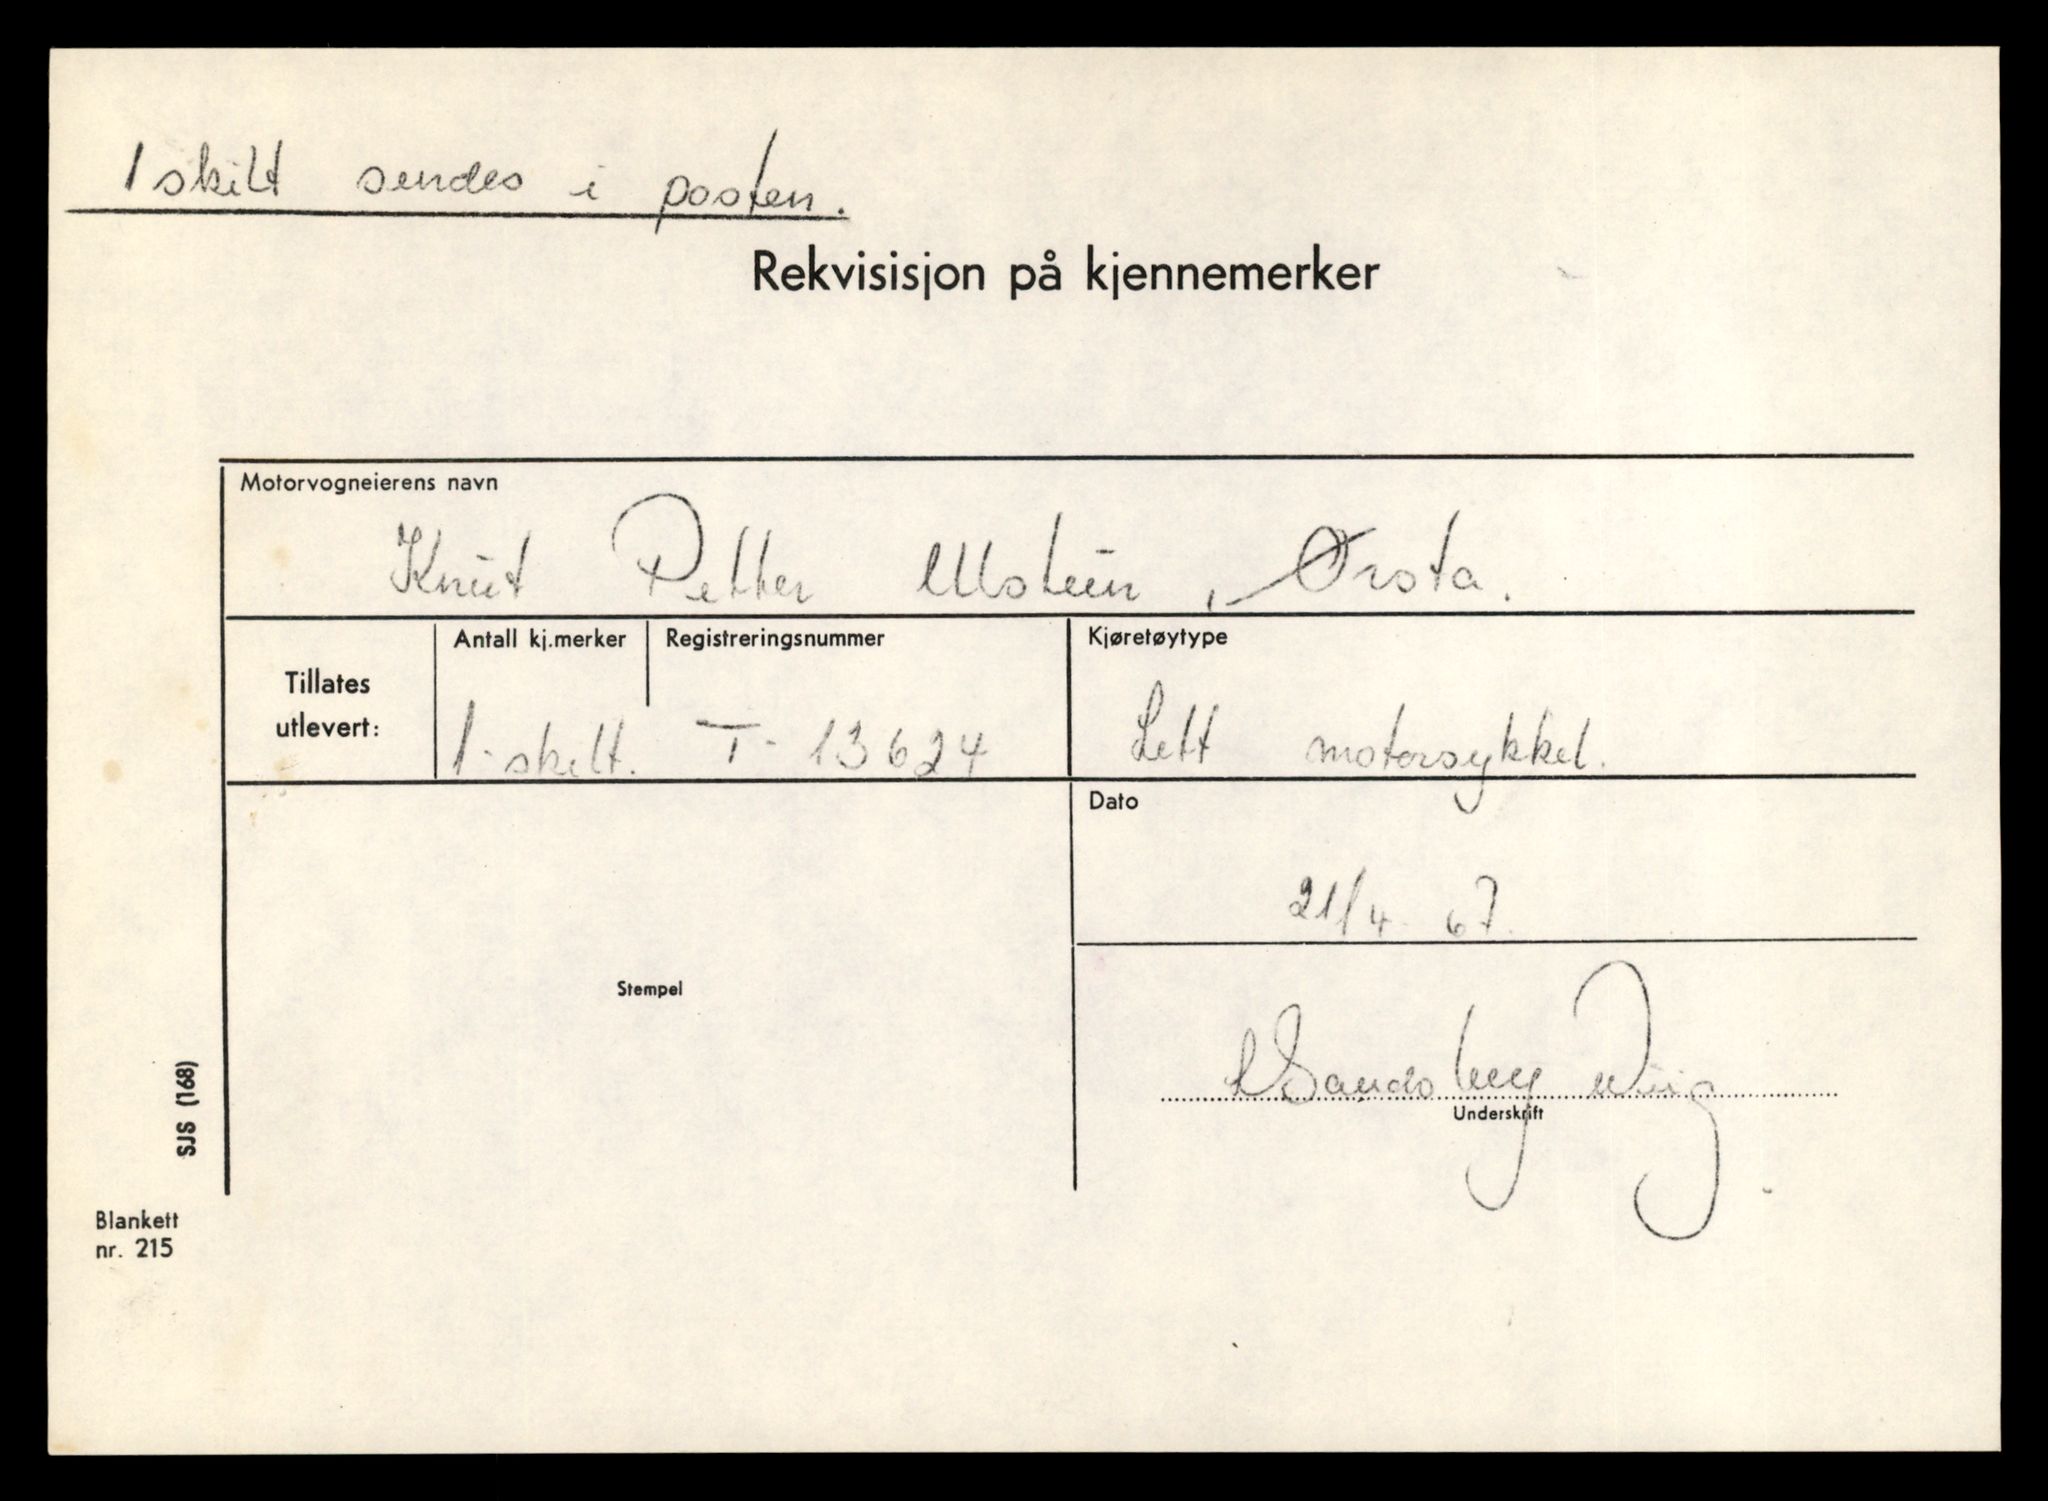 1 skilt sendes i posten.
Rekvisisjon på kjennemerker
Motorvogneierens navn
Knut Petter Ulstein, Ørsta.
Tillates utlevert:
Antall kj.merker
1 - skilt.
Registreringsnummer
T - 13624
Kjøretøytype
Lett motorsykkel.
Dato
21/4 - 67.
Stempel
Underskrift
SJS (168)
Blankett
nr. 215